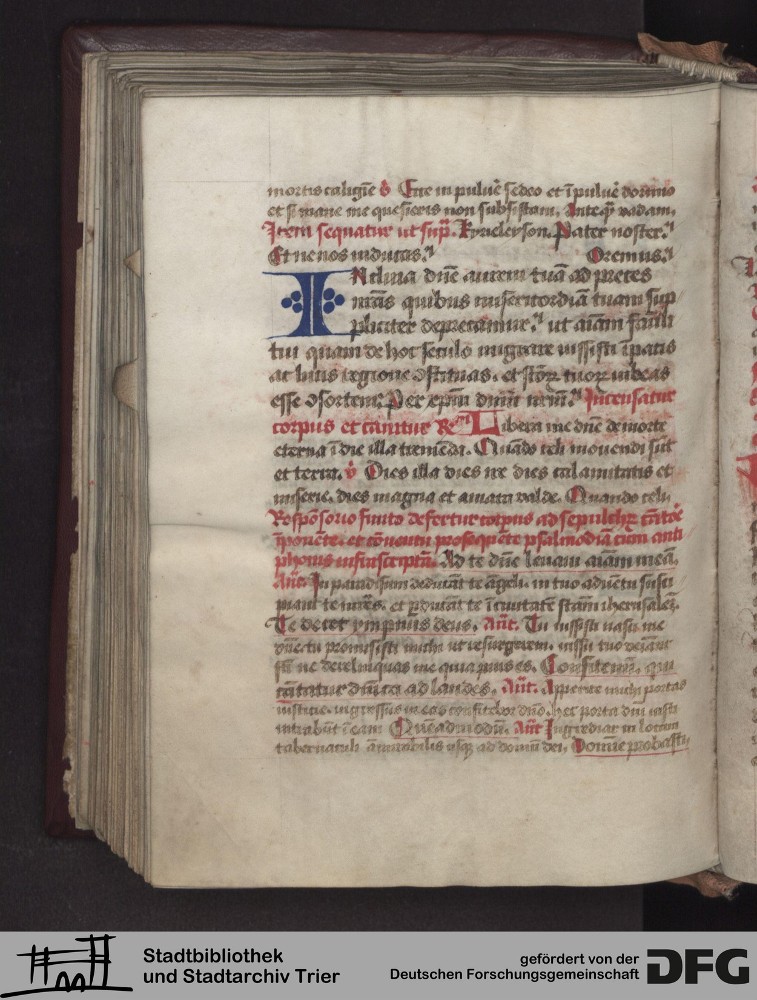 mortis caligīe ꝟ Ecce in pulue᷑ sedeo et ī pulue᷑ dormio
et si mane me quesieris non subsistam. Anteq̄ vadam.
Item sequatur ut sup̄. Kyrieleyson. Pater noster.
Et ne nos inducas. Oremus.
INclina dn̄e aurem tuā ad preces
nr̄as quibus misericordiā tuam sup
pliciter deprecamur. ut aīam famli
tui quam de hoc seculo migrare iussisti ī pacis
ac lucis regione ꝯstituas. et sc̄toꝝ tuoꝝ iubeas
esse ꝯsortem. Per xp̄m dnm̄ nr̄m. Incensatur
corpus et canitur Rm̄ Libera me dn̄e de morte
eterna ī die illa tremēda. Quādo celi mouendi sūt
et terra. ꝟ Dies illa dies ire dies calamitatis et
miserie. dies magna et amara valde. Quando celi.
Respōsorio finito defertur corpus ad sepulchꝝ
et cōuentu prosequēte psalmodiā cum anti
phonis infrascriptis. Ad te dn̄e leuaui aīam meā.
Añt. In paradisum deducāt te āgeli. in tuo aduētu susci
piant te mr̄es. et ꝑducāt te ī ciuitatē sc̄am iherusalē.
Te decet ympnus deus. Añt. Tu iussisti nasci me
dn̄e. tu promisisti michi ut resurgerem. iussu tuo
ne derelinquas me quia pius es. Confitemini. qui
cātatur ad laudes. Añt. Apperite michi portas
iusticie. ingressus in eas confitebor dn̄o. hec porta dn̄i iusti
intrabūt ī eam Quēadmodū. Añt Ingrediar in locum
tabernaculi āmirabilis usqꝫ ad domū dei. Domine probasti.
Stadtbibliothek
und Stadtarchiv Trier
gefördert von der
Deutschen Forschungsgemeinschaft
DFG